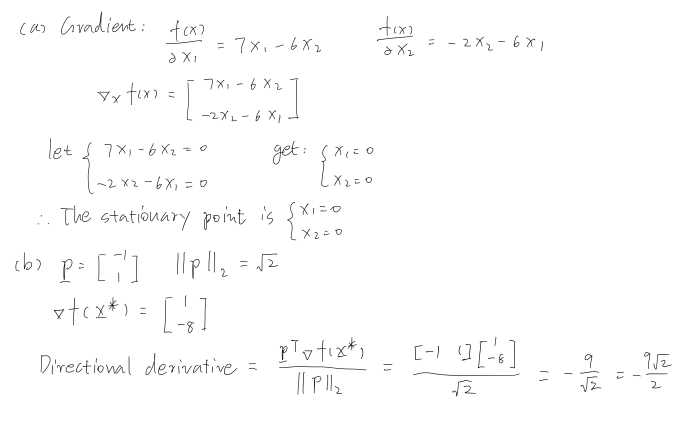 (a) Gradient: f(x)/∂x₁ = 7x₁ - 6x₂ f(x)/∂x₂ = -2x₂ - 6x₁
∇ₓ f(x) = [ 7x₁ - 6x₂
-2x₂ - 6x₁ ]
let { 7x₁ - 6x₂ = 0 get: { x₁ = 0
-2x₂ - 6x₁ = 0 x₂ = 0
∴ The stationary point is { x₁ = 0
x₂ = 0
(b) p = [ -1 1 ] ||p||₂ = √2
∇f(x*) = [ 1
-8 ]
Directional derivative = pᵀ∇f(x*) / ||p||₂ = [-1 1][ 1 -8 ] / √2 = - 9/√2 = - 9√2/2